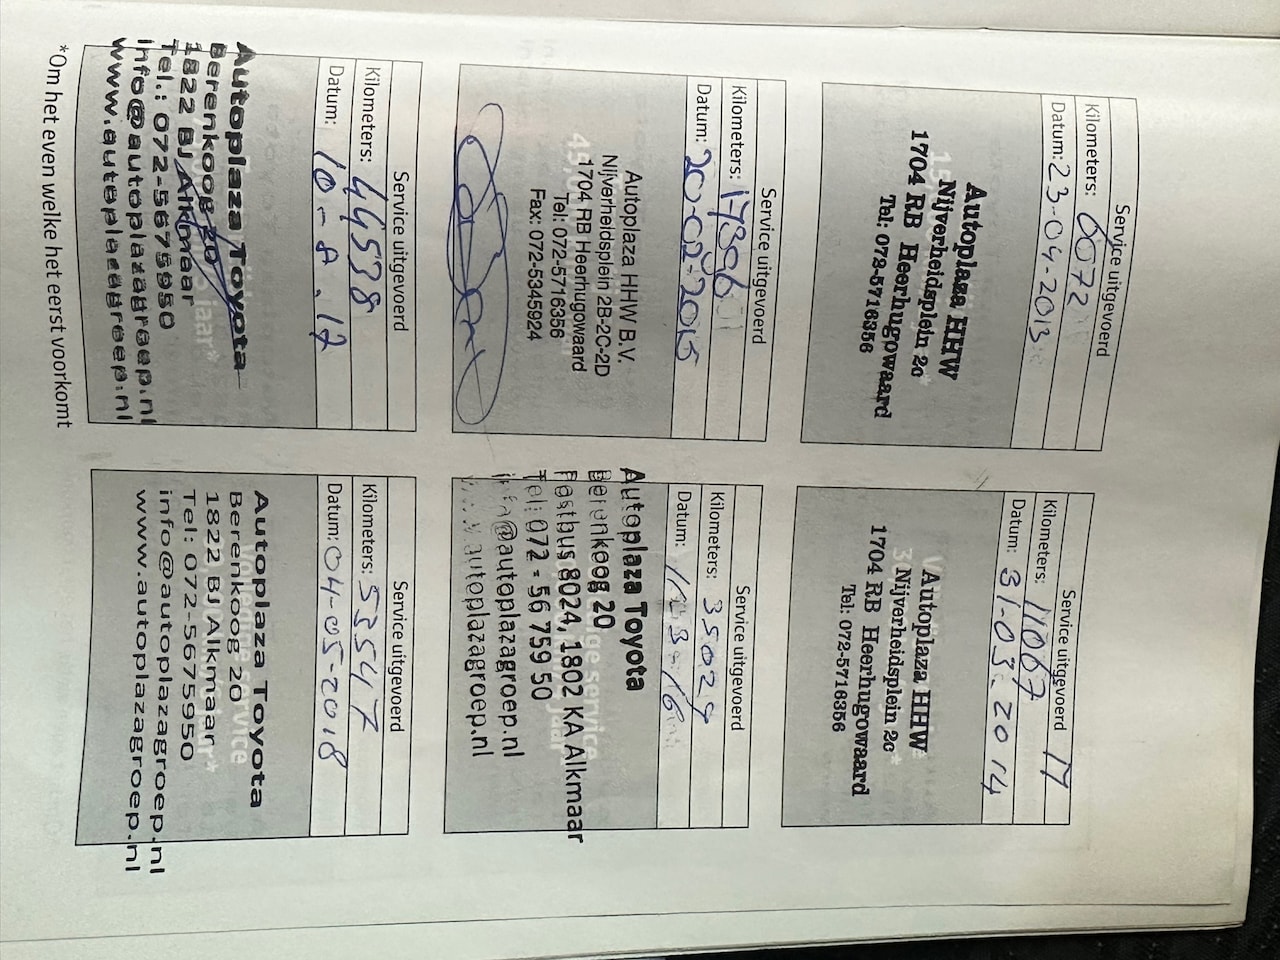 Service uitgevoerd
Kilometers: 6072
Datum: 23-04-2013
Autoplaza HHW
Nijverheidsplein 2c
1704 RB Heerhugowaard
Tel: 072-5716356
Service uitgevoerd 17
Kilometers: 11067
Datum: 31-03-2014
Autoplaza HHW
Nijverheidsplein 2c
1704 RB Heerhugowaard
Tel: 072-5716356
Service uitgevoerd
Kilometers: 17396
Datum: 20-02-2015
Autoplaza HHW B.V.
Nijverheidsplein 2B-2C-2D
1704 RB Heerhugowaard
Tel: 072-5716356
Fax: 072-5345924
Service uitgevoerd
Kilometers: 35029
Datum:
Autoplaza Toyota
Berenkoog 20
Postbus 8024, 1802 KA Alkmaar
Tel: 072 - 56 759 50
info@autoplazagroep.nl
www.autoplazagroep.nl
Service uitgevoerd
Kilometers: 44538
Datum: 10-8-17
Autoplaza Toyota
Berenkoog 20
1822 BJ Alkmaar
Tel.: 072-5675950
info@autoplazagroep.nl
www.autoplazagroep.nl
Service uitgevoerd
Kilometers: 53547
Datum: 04-05-2018
Autoplaza Toyota
Berenkoog 20
1822 BJ Alkmaar
Tel: 072-5675950
info@autoplazagroep.nl
www.autoplazagroep.nl
*Om het even welke het eerst voorkomt